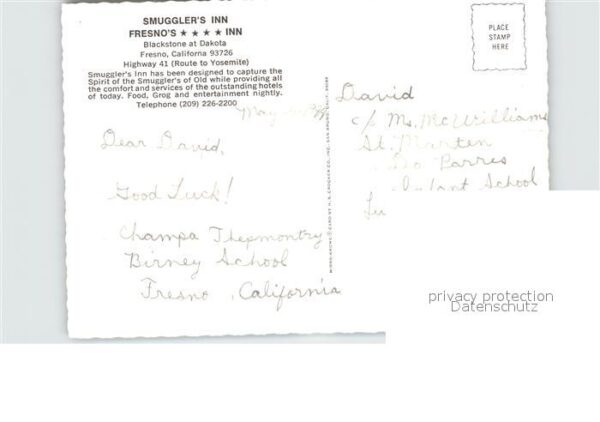 SMUGGLER'S INN
FRESNO'S ★ ★ ★ ★ INN
Blackstone at Dakota
Fresno, Californa 93726
Highway 41 (Route to Yosemite)
Smuggler's Inn has been designed to capture the
Spirit of the Smuggler's of Old while providing all
the comfort and services of the outstanding hotels
of today. Food, Grog and entertainment nightly.
Telephone (209) 226-2200
May
Dear David,
Good Luck!
Champa Thepmontry
Birney School
Fresno, California
PLACE
STAMP
HERE
David
c/o Ms. McWilliams
St. Marten
School
privacy protection
Datenschutz